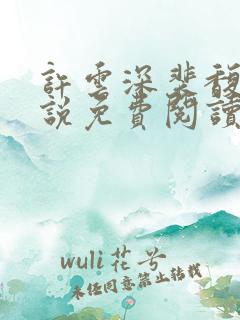 許雲深裴馥
說免費閱讀
wuli花兮
未经同意禁止转载